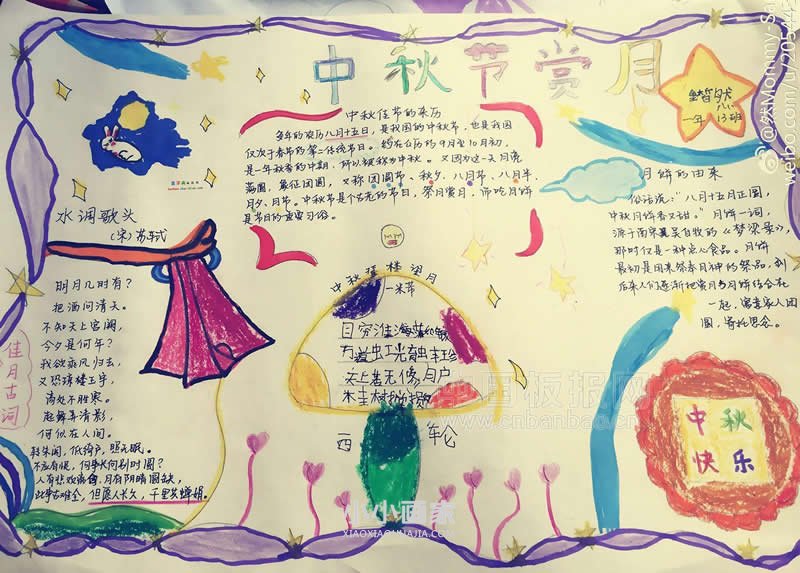 中秋节赏月
中秋佳节的来历
每年的农历八月十五日,是我国的中秋节,也是我国
仅次于春节的第二传统节日。约在公历的9月至10月初,
是一年秋香的中期,所以被称为中秋。又因为这一天月亮
满圆,象征团圆,又称团圆节、秋夕、八月节、八月半、
月夕、月节。中秋节是个古老的节日,祭月赏月,而吃月饼
是节日的重要习俗。
水调歌头
(宋)苏轼
明月几时有?
把酒问青天。
不知天上宫阙,
今夕是何年?
我欲乘风归去,
又恐琼楼玉宇,
高处不胜寒。
起舞弄清影,
何似在人间。
转朱阁,低绮户,照无眠。
不应有恨,何事长向别时圆?
人有悲欢离合,月有阴晴圆缺,
此事古难全,但愿人长久,千里共婵娟。
佳月古词
中秋登楼望月
一米芾
目穷淮海
西
轮
一年13班
月饼的由来
俗话说:"八月十五月正圆,
中秋月饼香又甜。"月饼一词,
源于南宋吴自牧的《梦梁录》,
那时仅是一种点心食品。月饼
最初是用来祭奉月神的祭品,到
后来人们逐渐把赏月与月饼结合在
一起,寓意家人团
圆,寄托思念。
中秋
快乐
中国板报网
www.cnbanbao.cn
小小画家
XIAOXIAOHUAJIA.COM
weibo.com/u/205